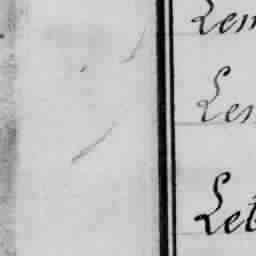 Lem
Len
Let